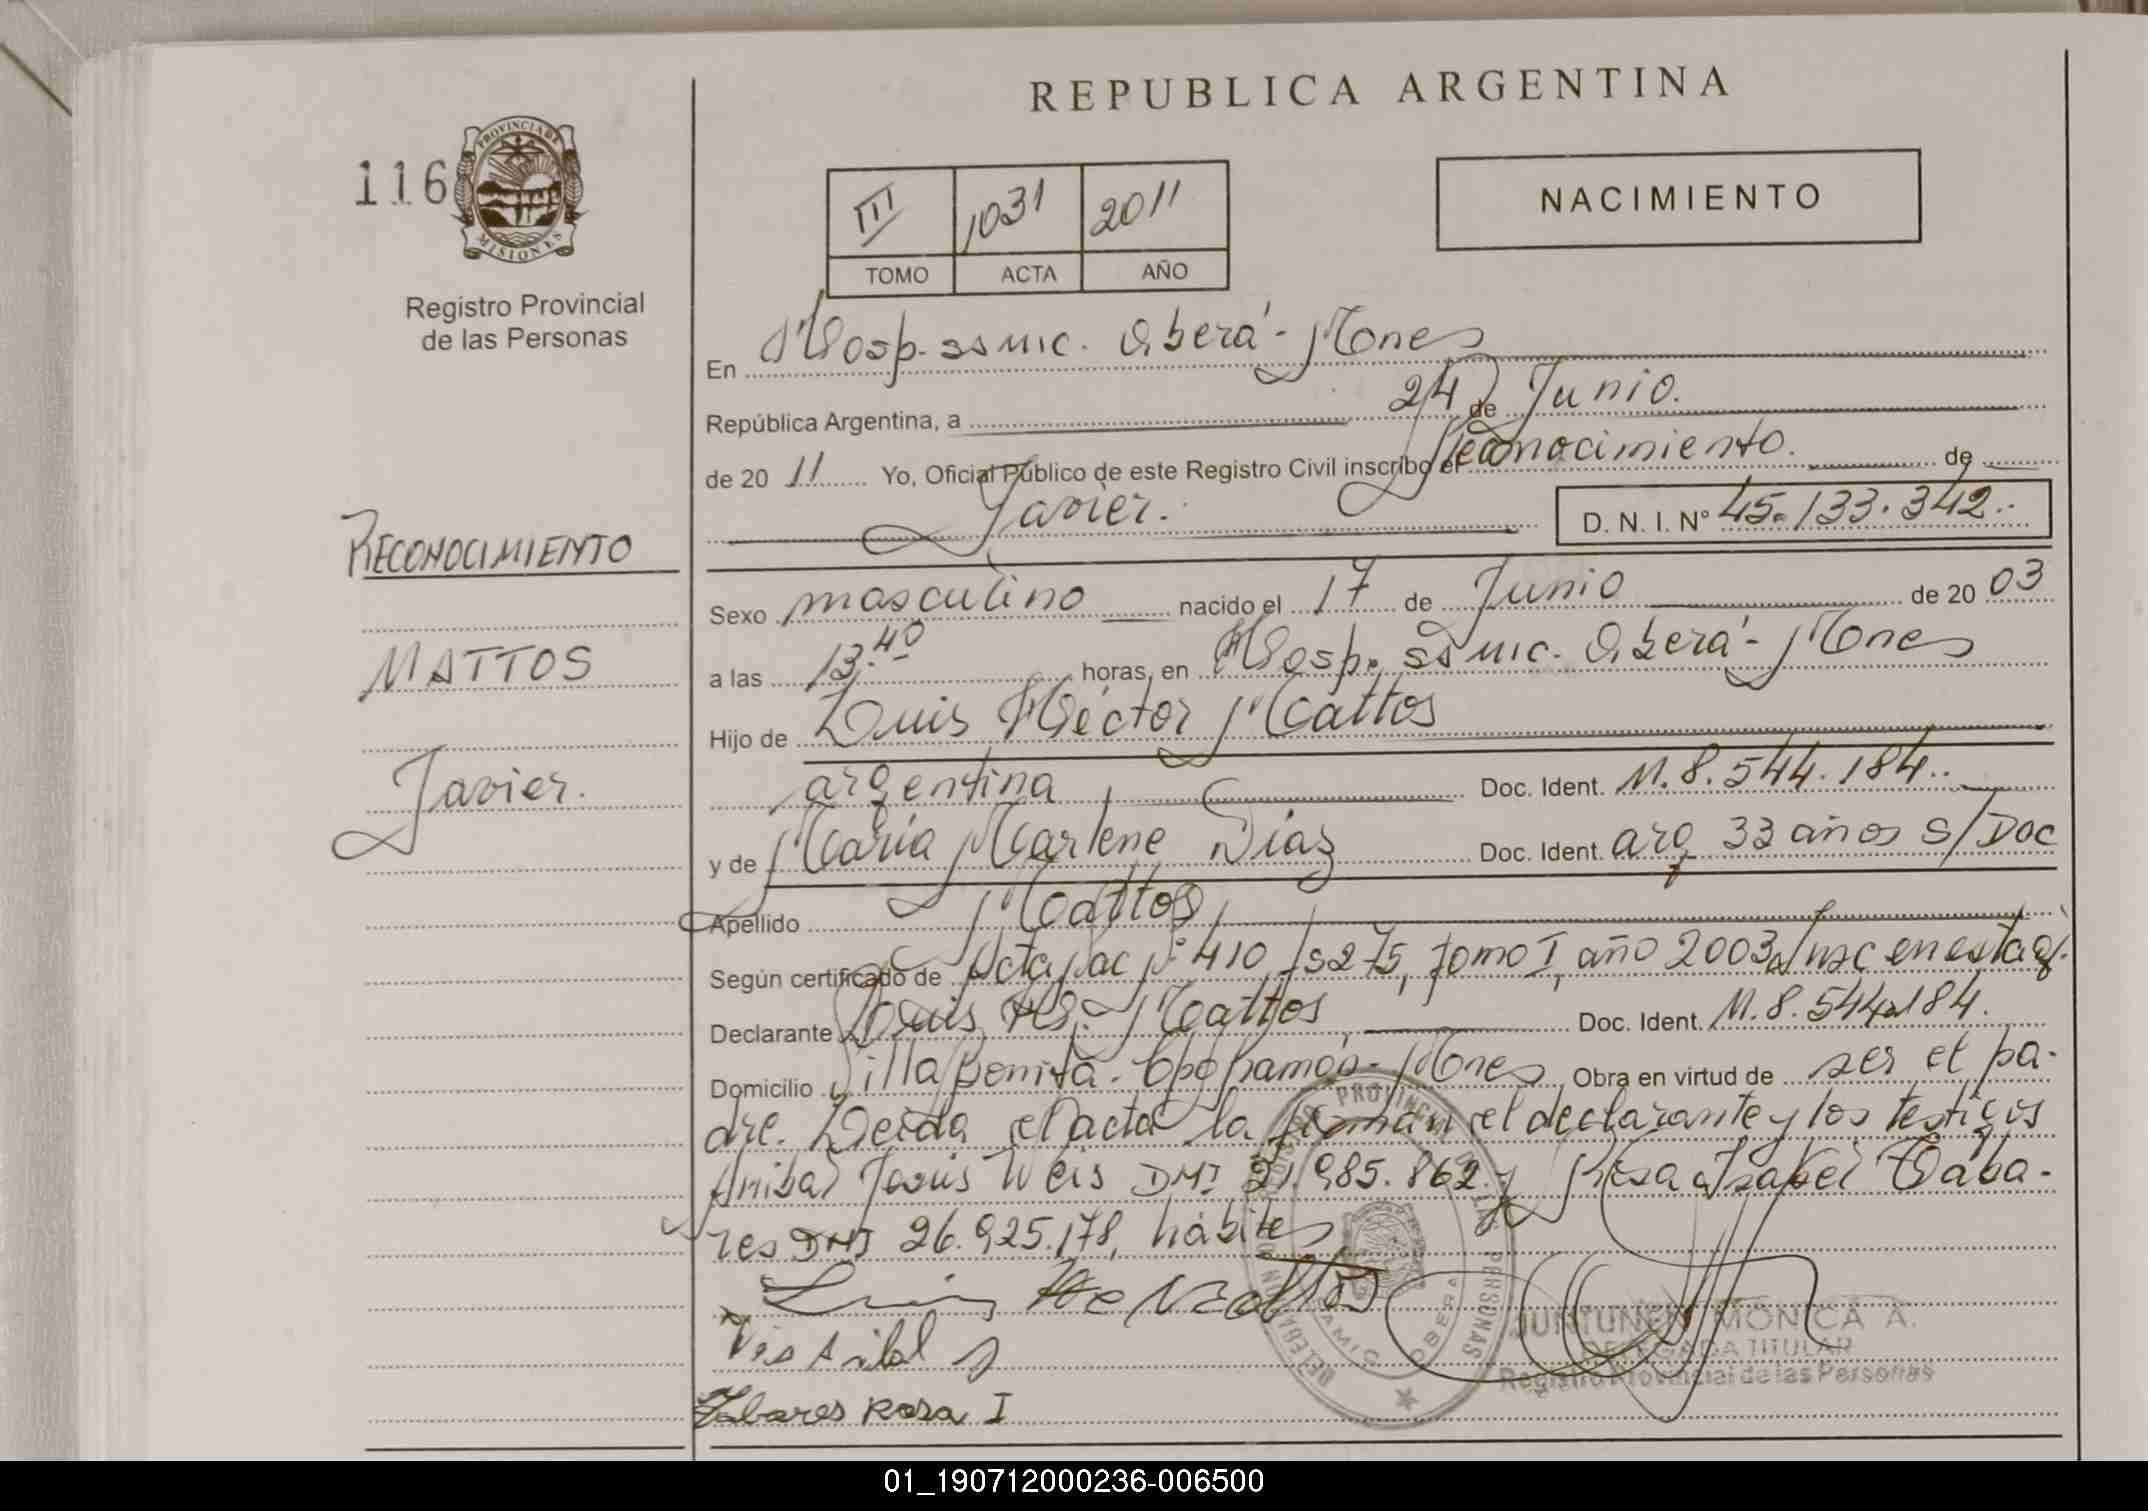 REPUBLICA ARGENTINA
116
PROVINCIA DE
MISIONES
Registro Provincial
de las Personas
III 1031 2011
TOMO ACTA AÑO
NACIMIENTO
En Hosp. ssmic. Oberá - Mones
República Argentina, a 24 de Junio.
de 20 11 Yo, Oficial Público de este Registro Civil inscribo el Reconocimiento. de
Javier. D. N. I. Nº 45.133.342..
RECONOCIMIENTO
MATTOS
Javier.
Sexo masculino nacido el 17 de Junio de 20 03
a las 13.40 horas, en Hosp. ssmic. Oberá - Mones
Hijo de Luis Héctor Mattos
argentina Doc. Ident. M. 8.544.184..
y de María Marlene Diaz Doc. Ident. arg 33 años s/Doc
Apellido Mattos
Según certificado de Acta Nac Nº 410, fs 275, Tomo I, año 2003, insc en esta of.
Declarante Luis H. Mattos Doc. Ident. M. 8.544.184.
Domicilio Villa Bonita. Cpo Ramón - Mones Obra en virtud de ser el pa-
dre. Leída el acta la firman el declarante y los testigos
Anibal Jesús Weis DNI 21.985.862 y Rosa Isabel Taba-
res DNI 26.925.178, hábiles
Luis He Mattos
Tabares Rosa I
JUNTUNEN MONICA A.
DELEGADA TITULAR
Registro Provincial de las Personas
01_190712000236-006500